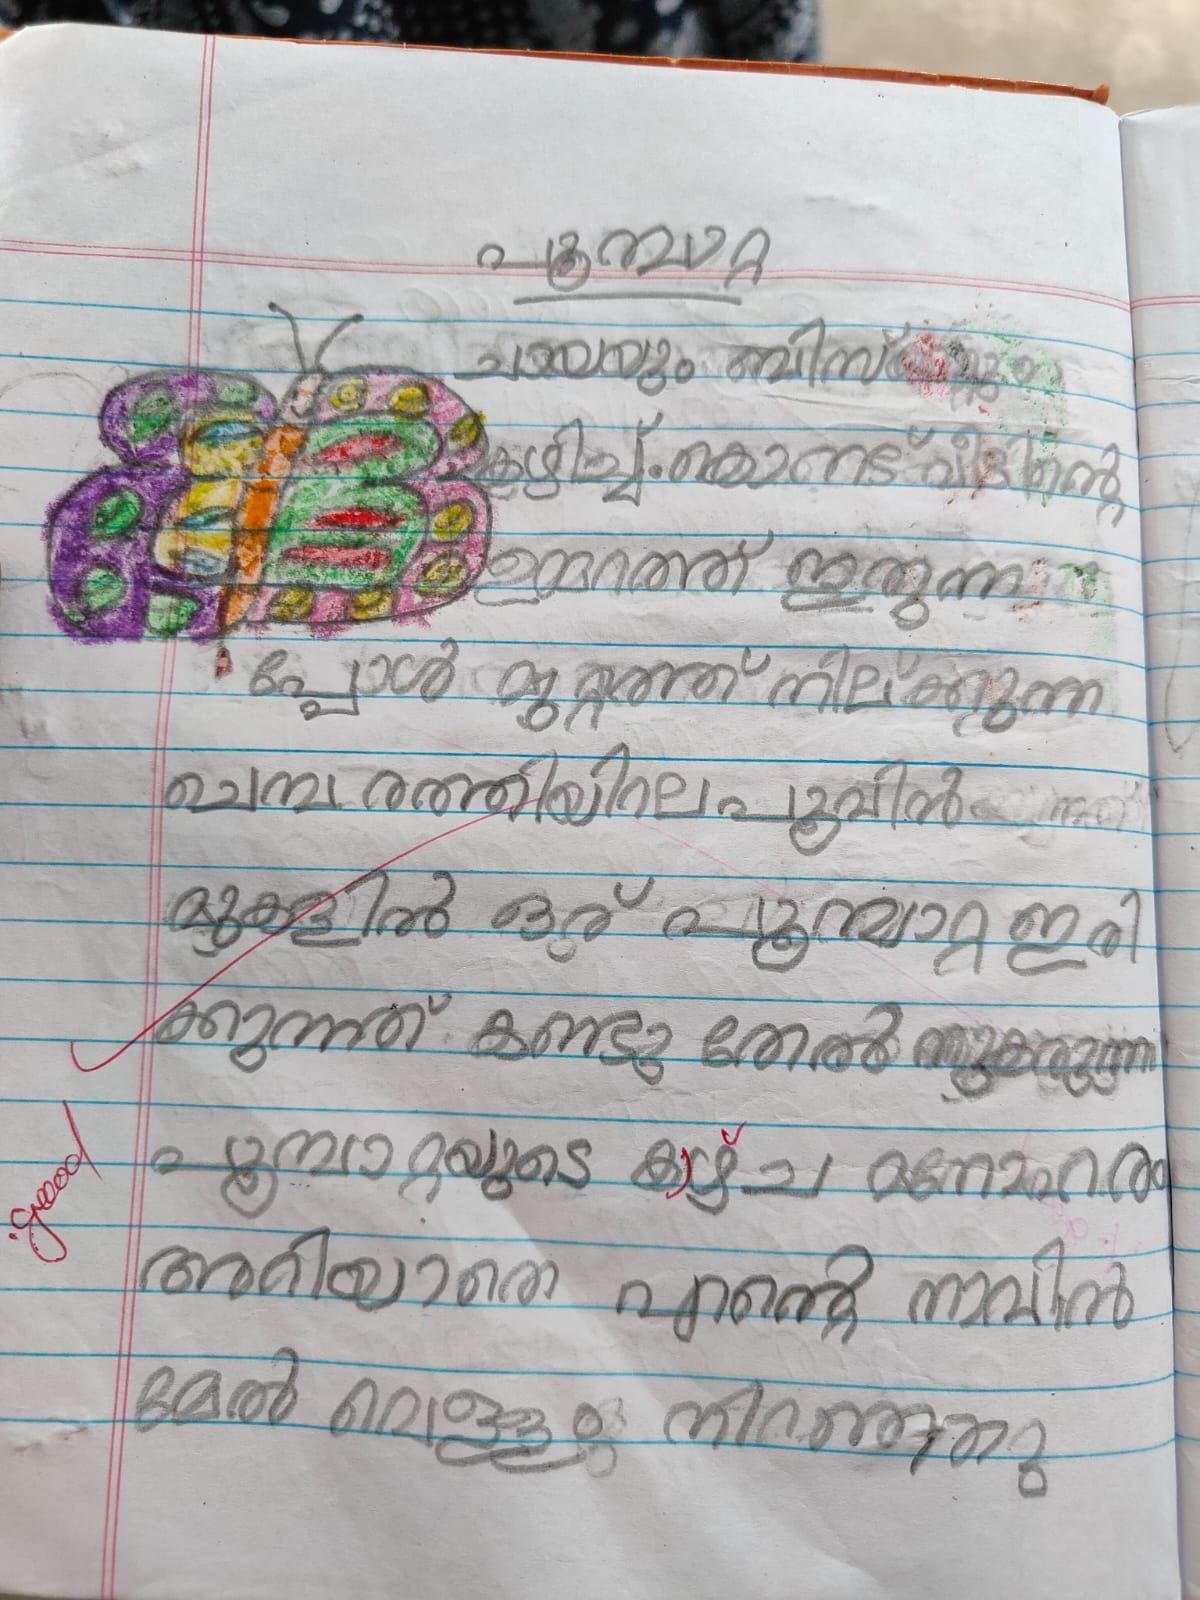 പൂമ്പാറ്റ
ചായയും ബിസ്ക്കറ്റും
കഴിച്ച് കൊണ്ട് വീടിന്റെ
ഉമ്മറത്ത് ഇരുന്ന
പ്പോൾ മുറ്റത്ത് നില്ക്കുന്ന
ചെമ്പരത്തിയിലെ പൂവിൽ
മുകളിൽ ഒരു് പൂമ്പാറ്റ ഇരി
ക്കുന്നത് കണ്ടു തേൽ നുകരുന്ന
പൂമ്പാറ്റയുടെ കാഴ്ച മനോഹരം
അറിയാതെ എന്റെ നാവിൽ
മേൽ വെള്ളം നിറഞ്ഞു
good